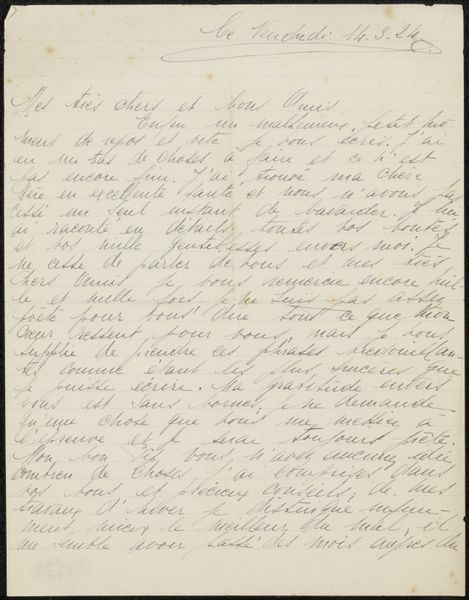 Ce Vendredi 14.3.24.
Mes très chers et bons Amis
Enfin un malheureux petit mo
ment de repos et vite je vous écris. J'ai
eu un tas de choses à faire et ce n'est
pas encore fini. J'ai trouvé ma chère
Mère en excellente santé et nous n'avons pas
cessé un seul instant de bavarder. Je lui
ai raconté en détails toutes vos bontés
et vos mille gentillesses envers moi. Je
ne cesse de parler de vous et mes très
chers Amis je vous remercie encore mil-
le et mille fois. Je ne suis pas assez
poète pour vous dire tout ce que mon
cœur ressent pour vous, mais je vous
supplie de prendre ces phrases
comme étant les plus sincères que
je puisse écrire. Ma gratitude envers
vous est sans bornes, je ne demande
qu'une chose que vous me mettiez à
l'épreuve et je serai toujours prête.
Mon bon vous n'avez aucune idée
combien de choses j'ai comprises dans
vos bons et précieux conseils; de mes
travaux d'hiver je distingue infini-
ment mieux le meilleur du mal; il
me semble avoir passé des mois auprès du